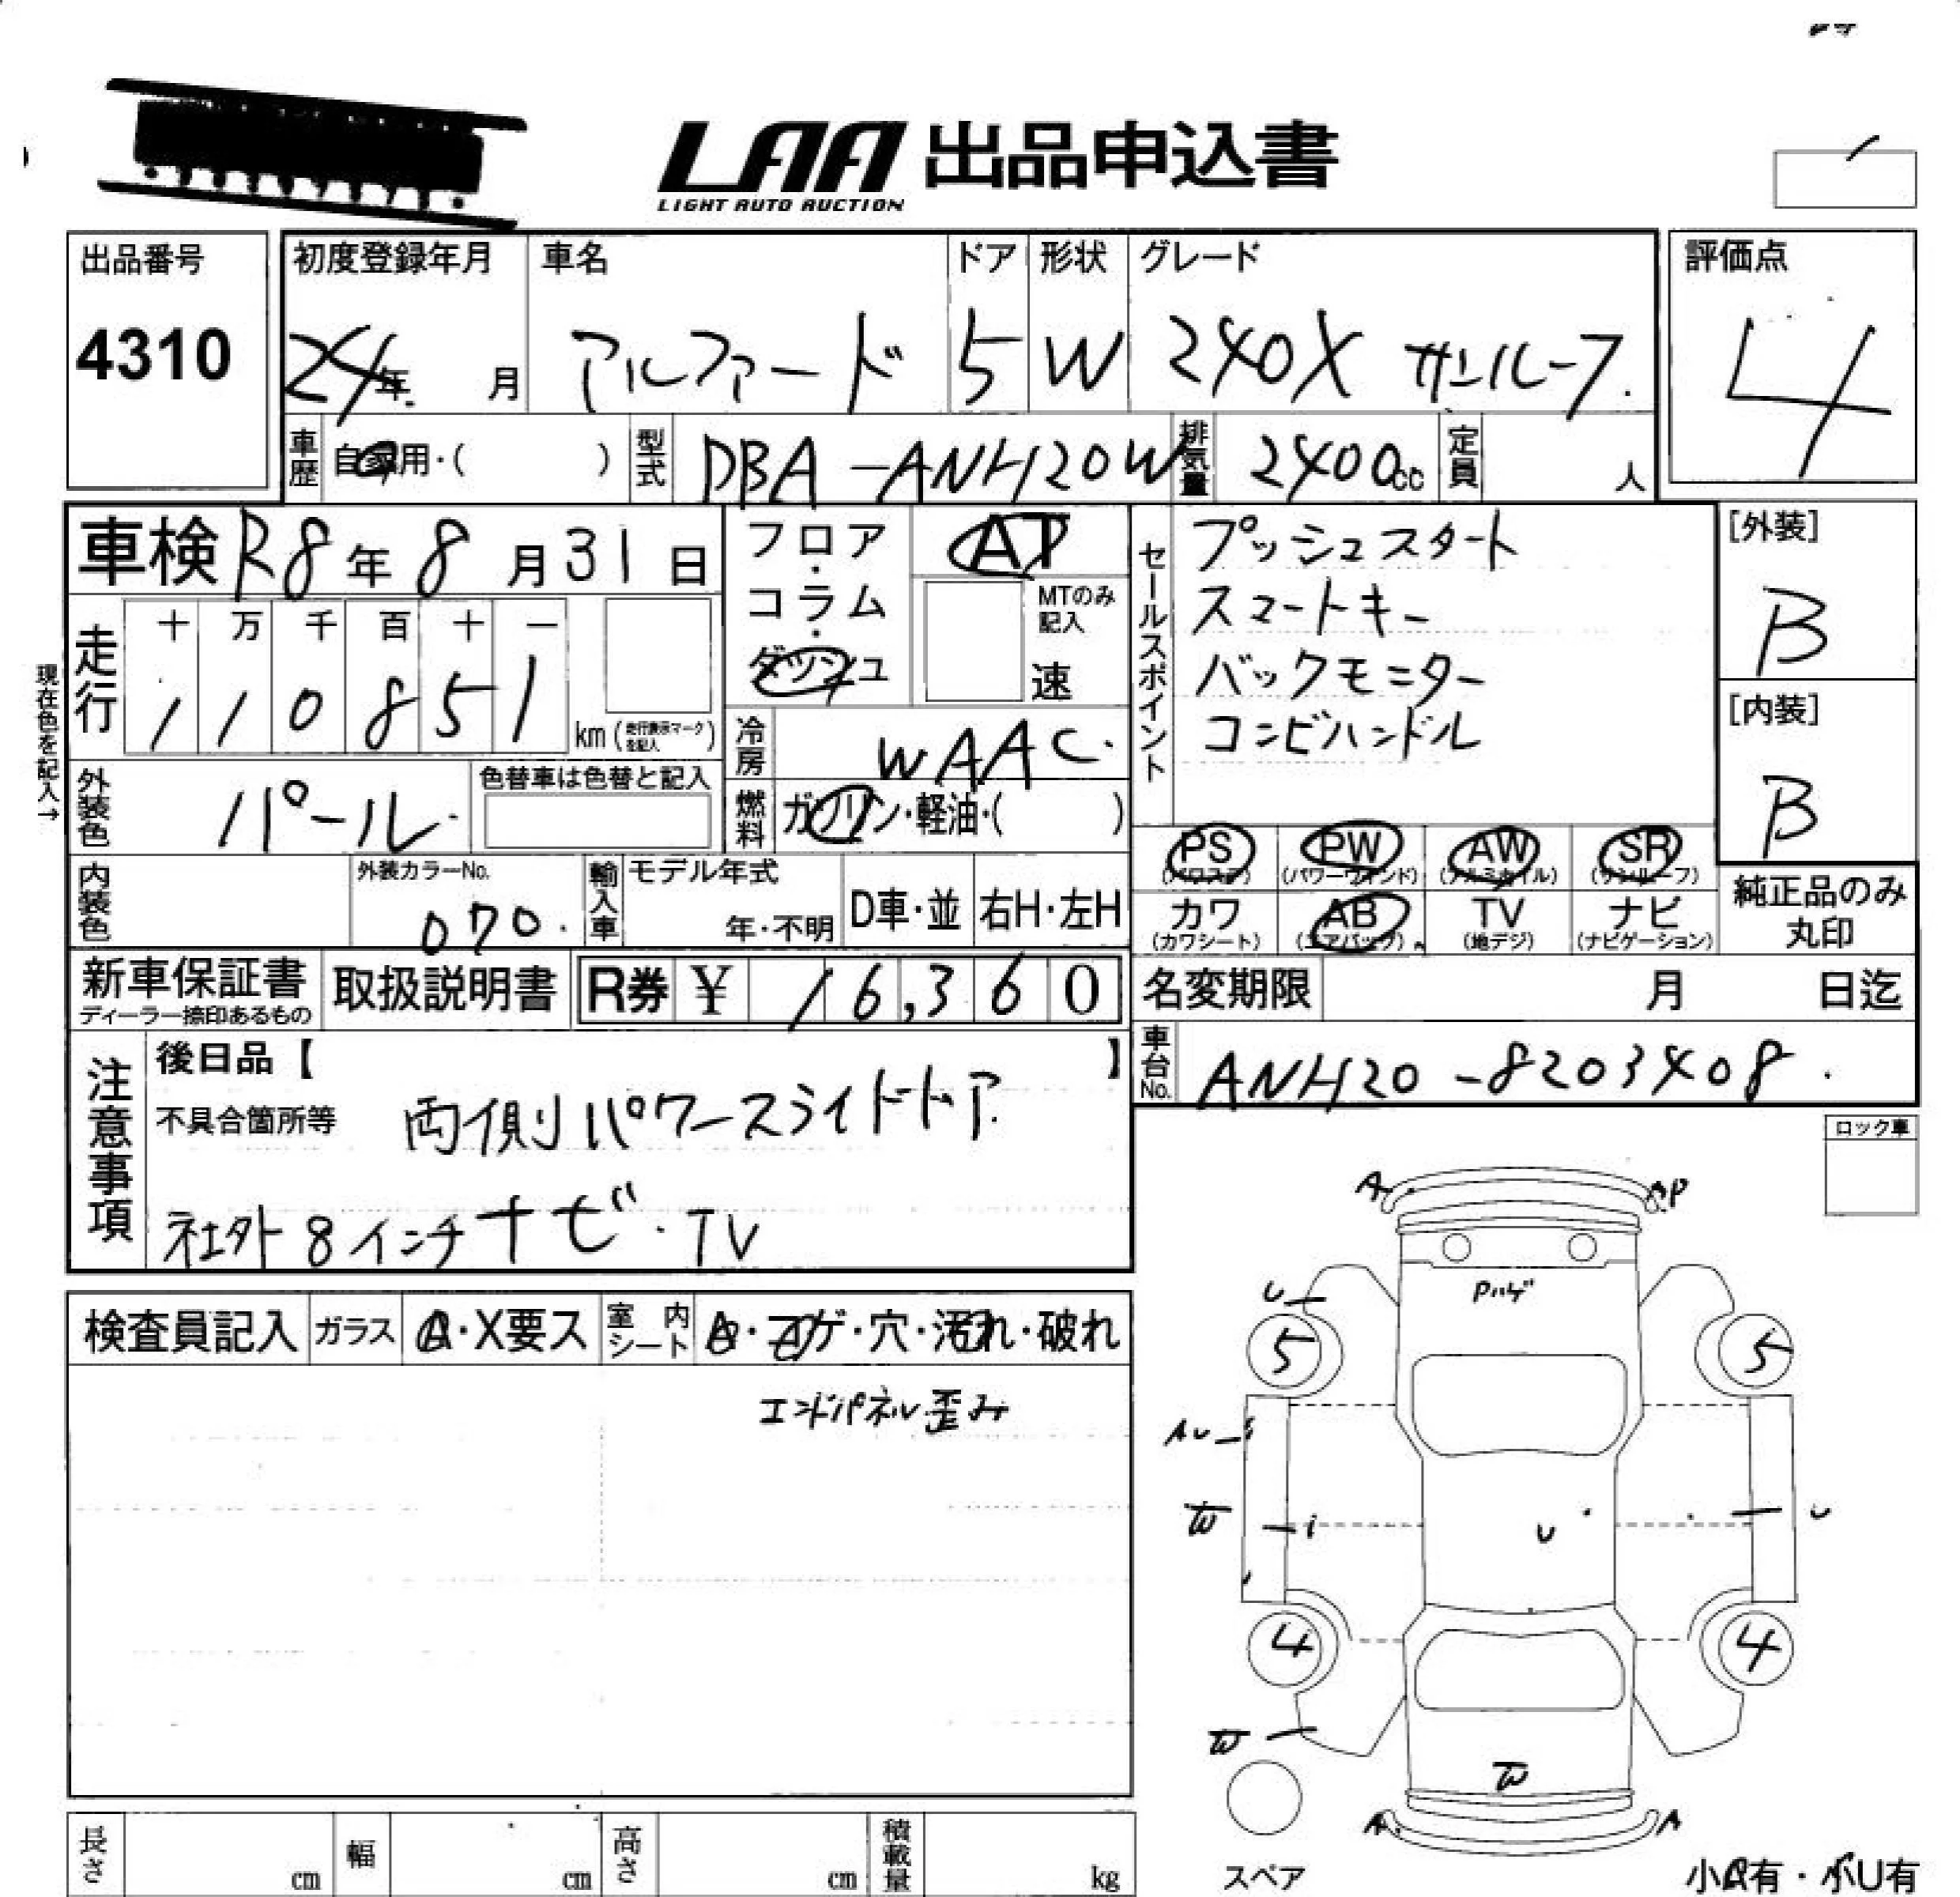 LAA 出品申込書
LIGHT AUTO AUCTION
出品番号
4310
初度登録年月
24年 月
車名
アルファード
ドア
5
形状
W
グレード
240X サンルーフ.
評価点
4
車歴 自家用・( )
型式 DBA-ANH20W
排気量 2400cc
定員 人
車検 R8年8月31日
フロア・コラム・ダッシュ
AT
MTのみ記入
速
セールスポイント
プッシュスタート
スマートキー
バックモニター
コンビハンドル
[外装]
B
[内装]
B
現在色を記入→
走行
十 万 千 百 十 一
1 1 0 8 5 1 km (走行表示マークを記入)
冷房 WAAC.
外装色 パール.
色替車は色替と記入
燃料 ガソリン・軽油・( )
PS (パワステ)
PW (パワーウィンド)
AW (アルミホイル)
SR (サンルーフ)
カワ (カワシート)
AB (エアバッグ)
TV (地デジ)
ナビ (ナビゲーション)
純正品のみ丸印
内装色
外装カラーNo.
070.
輸入車
モデル年式
年・不明
D車・並
右H・左H
新車保証書
ディーラー捺印あるもの
取扱説明書
R券 ¥ 16,360
名変期限 月 日迄
車台No. ANH20-8203408.
注意事項
後日品【 】
不具合箇所等
両側パワースライドドア
社外8インチナビ・TV
ロック車
検査員記入
ガラス A・X要ス
室内シート A・コゲ・穴・汚れ・破れ
エンドパネル歪み
A
AP
Pハゲ
U
5
5
AU
W
i
U
U
4
4
W
W
A
A
スペア
小A有・小U有
長さ cm
幅 cm
高さ cm
積載量 kg